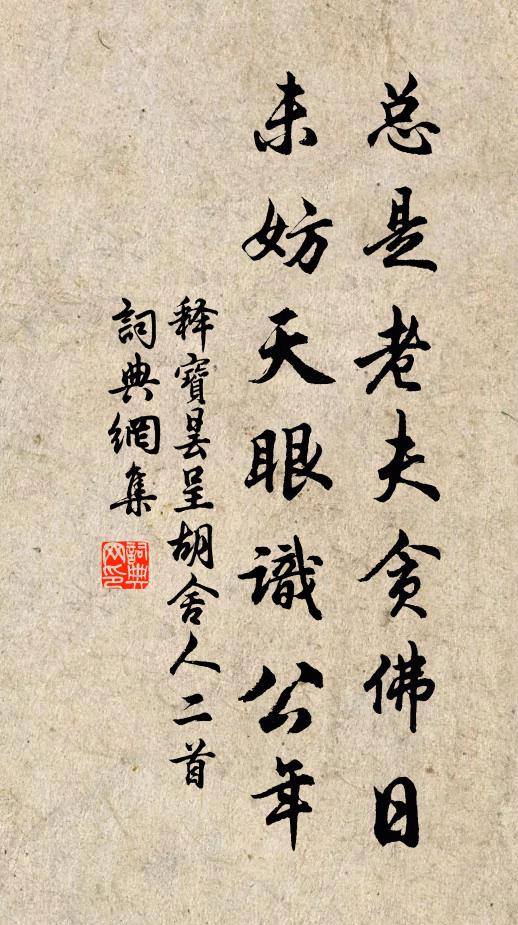 总是老夫贪佛日
未妨天眼識公年
释寶昙呈胡舍人二首
詞典網集
詞典网印